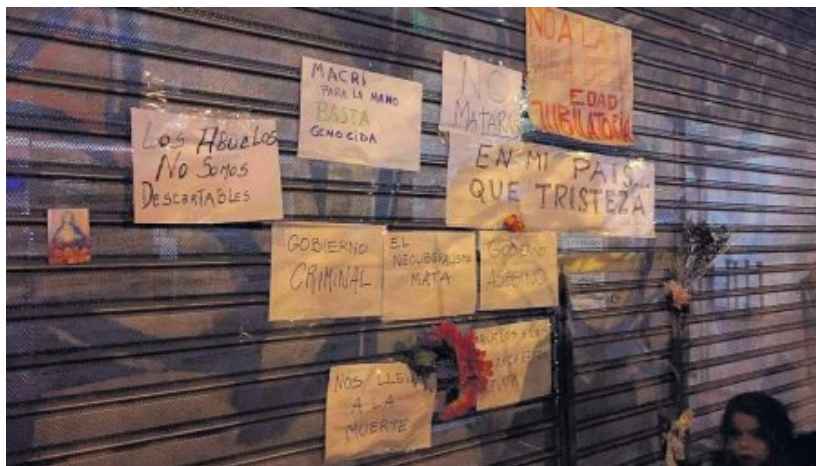 LOS ABUELOS
NO SOMOS
DESCARTABLES
MACRI
PARA LA MANO
BASTA
GENOCIDA
NO
NO A LA
EDAD
JUBILATORIA
EN MI PAIS...
QUE TRISTEZA
GOBIERNO
CRIMINAL
EL
NEOLIBERALISMO
MATA
GOBIERNO
ASESINO
NOS
A LA
MUERTE